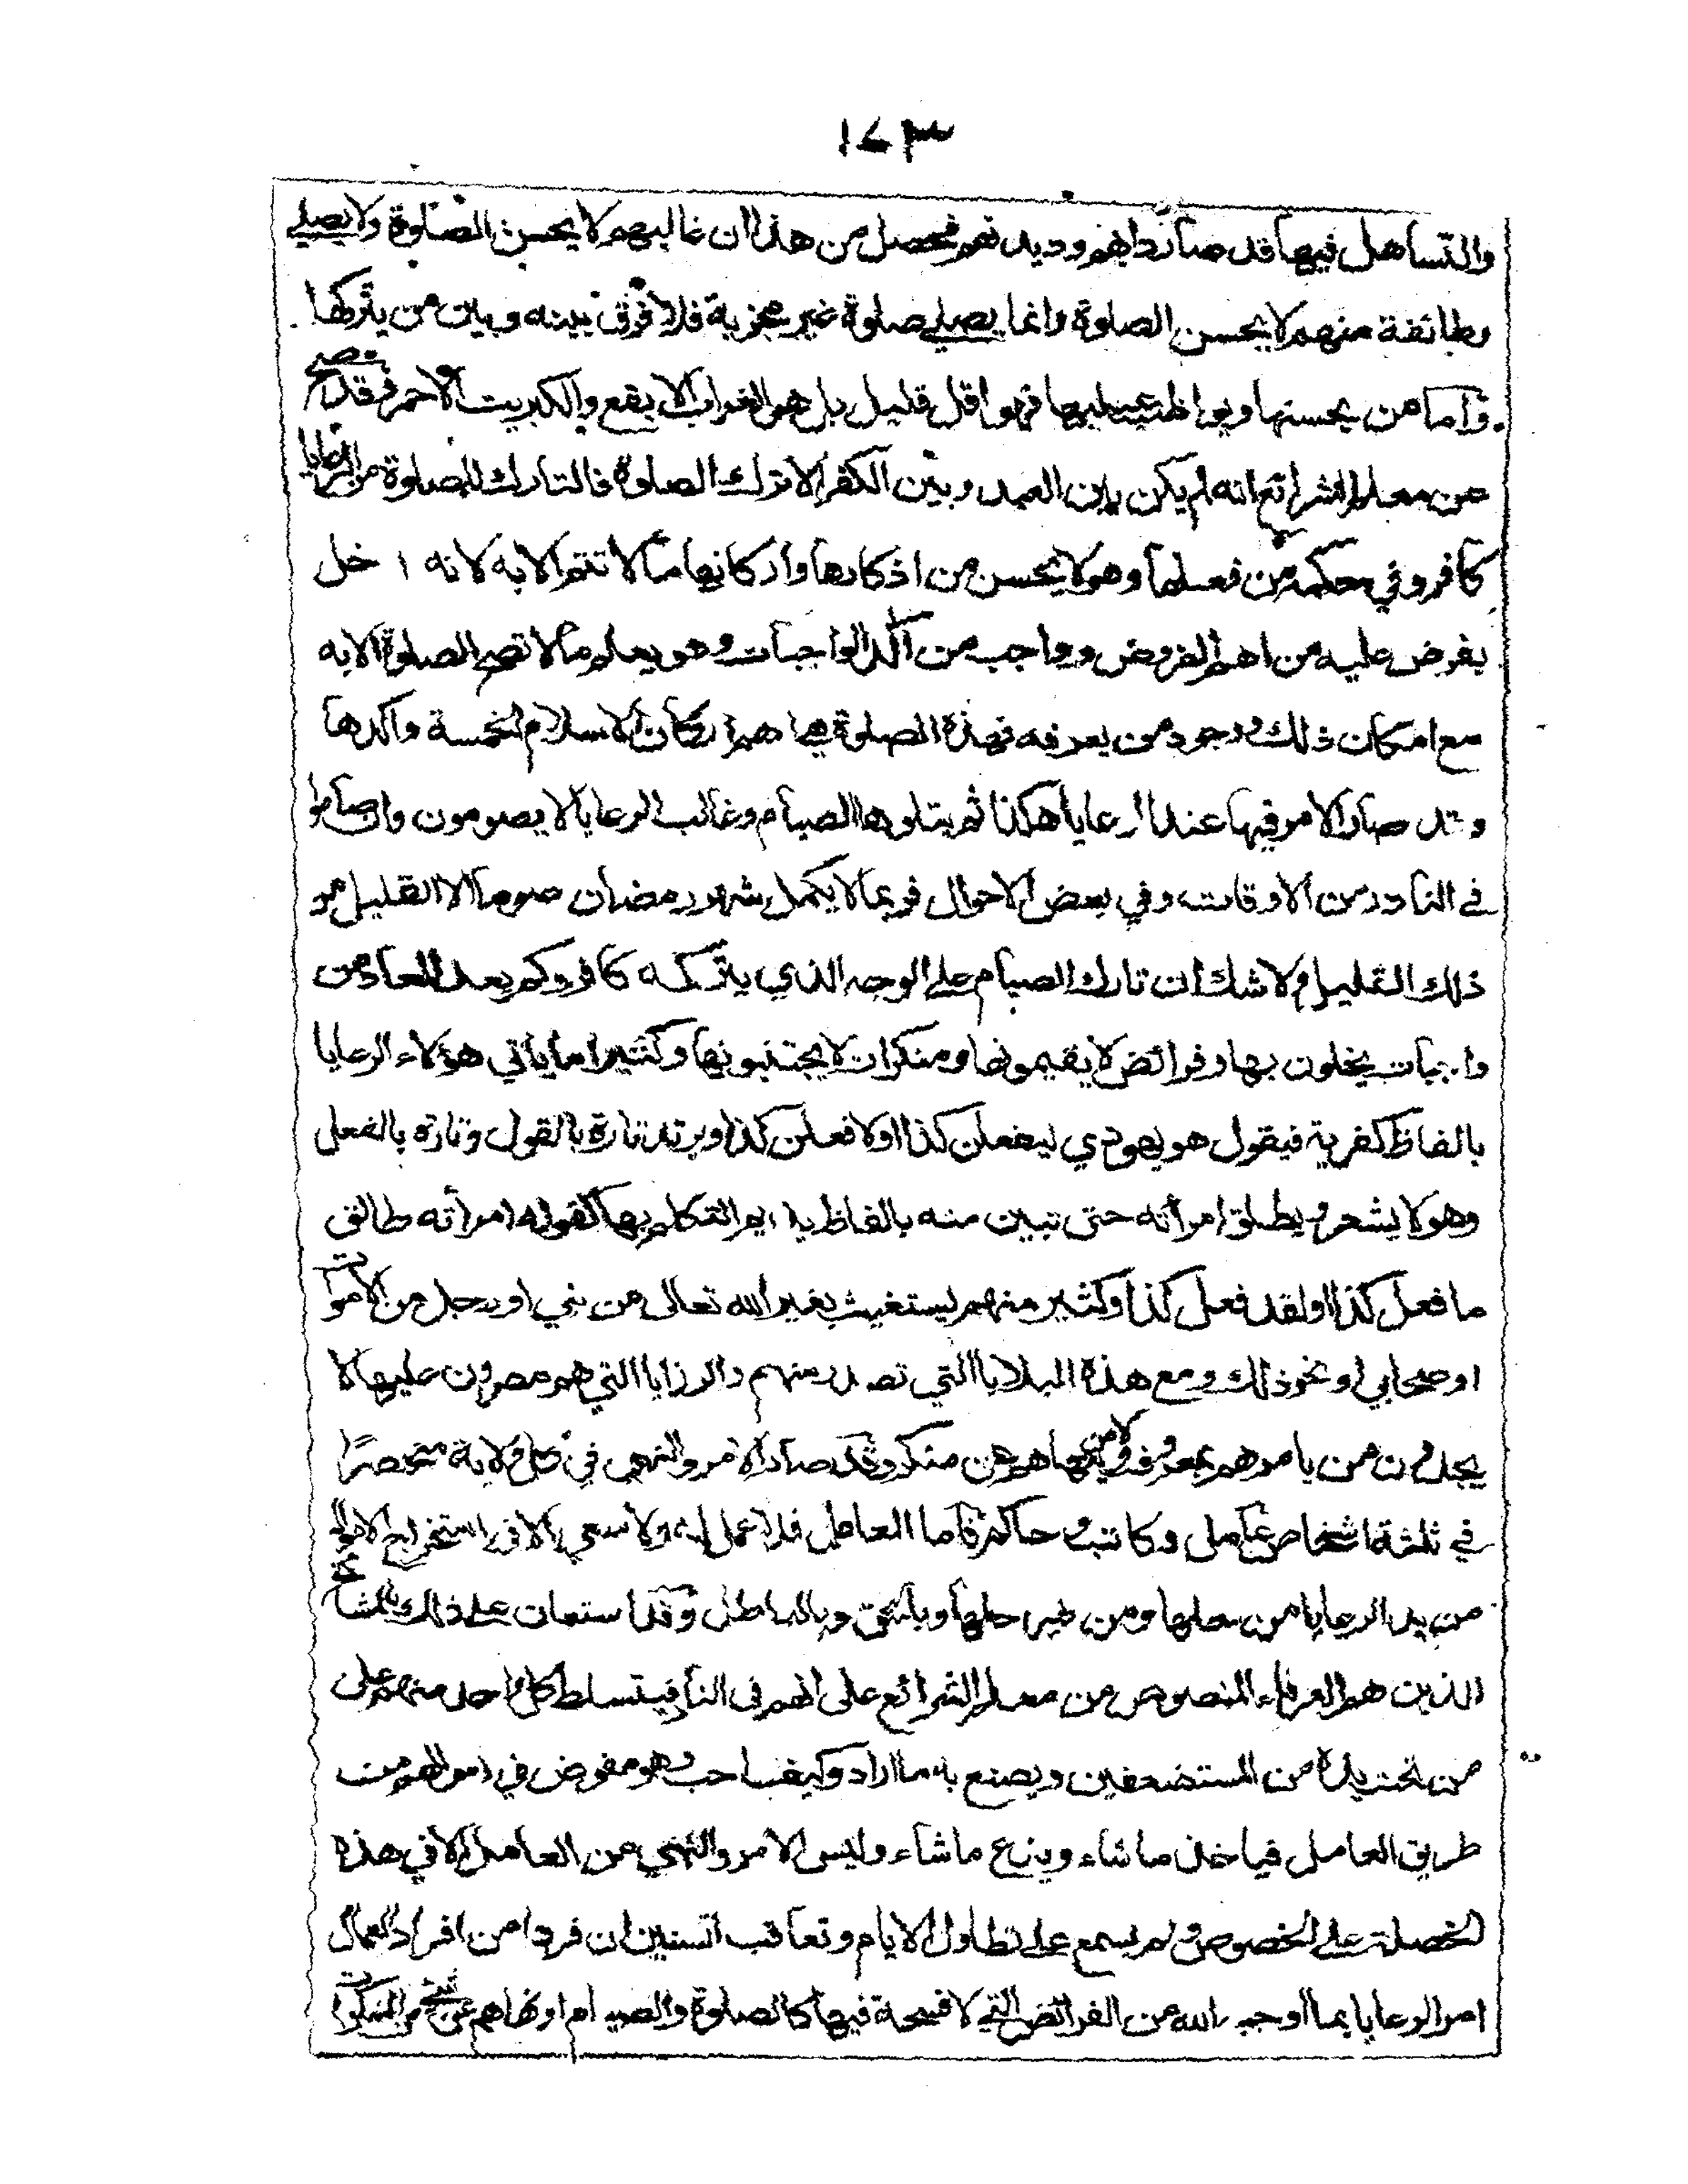 ١٧٣
والتساهل فيها قد صار دابهم وديدنهم فحصل من هذا ان غالبهم لا يحسن الصلوة ولا يصلي
وطائفة منهم لا يحسن الصلوة وانما يصلي صلوة غير مجزية فلا فرق بينه وبين من يتركها
واما من يحسنها ويواظب عليها فهو اقل قليل بل هو الغراب الابقع والكبريت الاحمر وقد صح
عن معلم الشرائع انه لم يكن بين العبد وبين الكفر الا ترك الصلوة فالتارك للصلوة من الرعايا
كافر وفي حكمه من فعلها وهو لا يحسن من اذكارها واركانها ما لا تتم الا به لانه اخل
بفرض عليه من اهم الفروض وواجب من آكد الواجبات وهو يعلم ما لا تصح الصلوة الا به
مع امكان ذلك ووجود من يعرفه فهذة الصلوة هي اهم اركان الاسلام الخمسة وآكدها
وقد صار الامر فيها عند الرعايا هكذا ثم يتلوها الصيام وغالب الرعايا لا يصومون وان صاموا
في النادر من الاوقات وفي بعض الاحوال فربما لا يكمل شهر رمضان صوما الا القليل من
ذلك القليل ولا شك ان تارك الصيام على الوجه الذي يتركه كافر وكم يعد العاد من
واجبات يخلون بها وفرائض لا يقيمونها ومنكرات لا يجتنبونها وكثيرا ما ياتي هؤلاء الرعايا
بالفاظ كفرية فيقول هو يهودي ليفعلن كذا او لا فعلن كذا ويرتد تارة بالقول وتارة بالفعل
وهو لا يشعر ويطلق امرأته حتى تبين منه بالفاظ يديم التكلم بها كقوله امرأته طالق
ما فعل كذا او لقد فعل كذا وكثير منهم يستغيث بغير الله تعالى من نبي او رجل من الاموات
او صحابي او نحو ذلك ومع هذة البلايا التي تصدر منهم والرزايا التي هم مصرون عليها لا
يجدون من يامرهم بمعروف ولا من ينهاهم عن منكر وقد صار الامر والنهي في كل ولاية منحصرًا
في ثلثة اشخاص عامل وكاتب وحاكم فاما العامل فلا عمل له ولا سعي الا في استخراج الاموال
من يد الرعايا من حلها ومن غير حلها وبالحق وبالباطل وقد استعان على ذلك بالمشائخ
الذين هم العرفاء المنصوص من معلم الشرائع على انهم في النار فيتسلط كل واحد منهم على
من تحت يدة من المستضعفين ويصنع به ما اراد وكيف احب وهو مفوض في اموالهم من
طريق العامل فياخذ ما شاء ويدع ما شاء وليس الامر والنهي من العامل الا في هذة
الخصلة على الخصوص ولم يسمع على تطاول الايام وتعاقب السنين ان فردا من افراد العمال
امر الرعايا بما اوجبه الله من الفرائض التي لا فسحة فيها كالصلوة والصيام او نهاهم عن شيخ من المنكرات